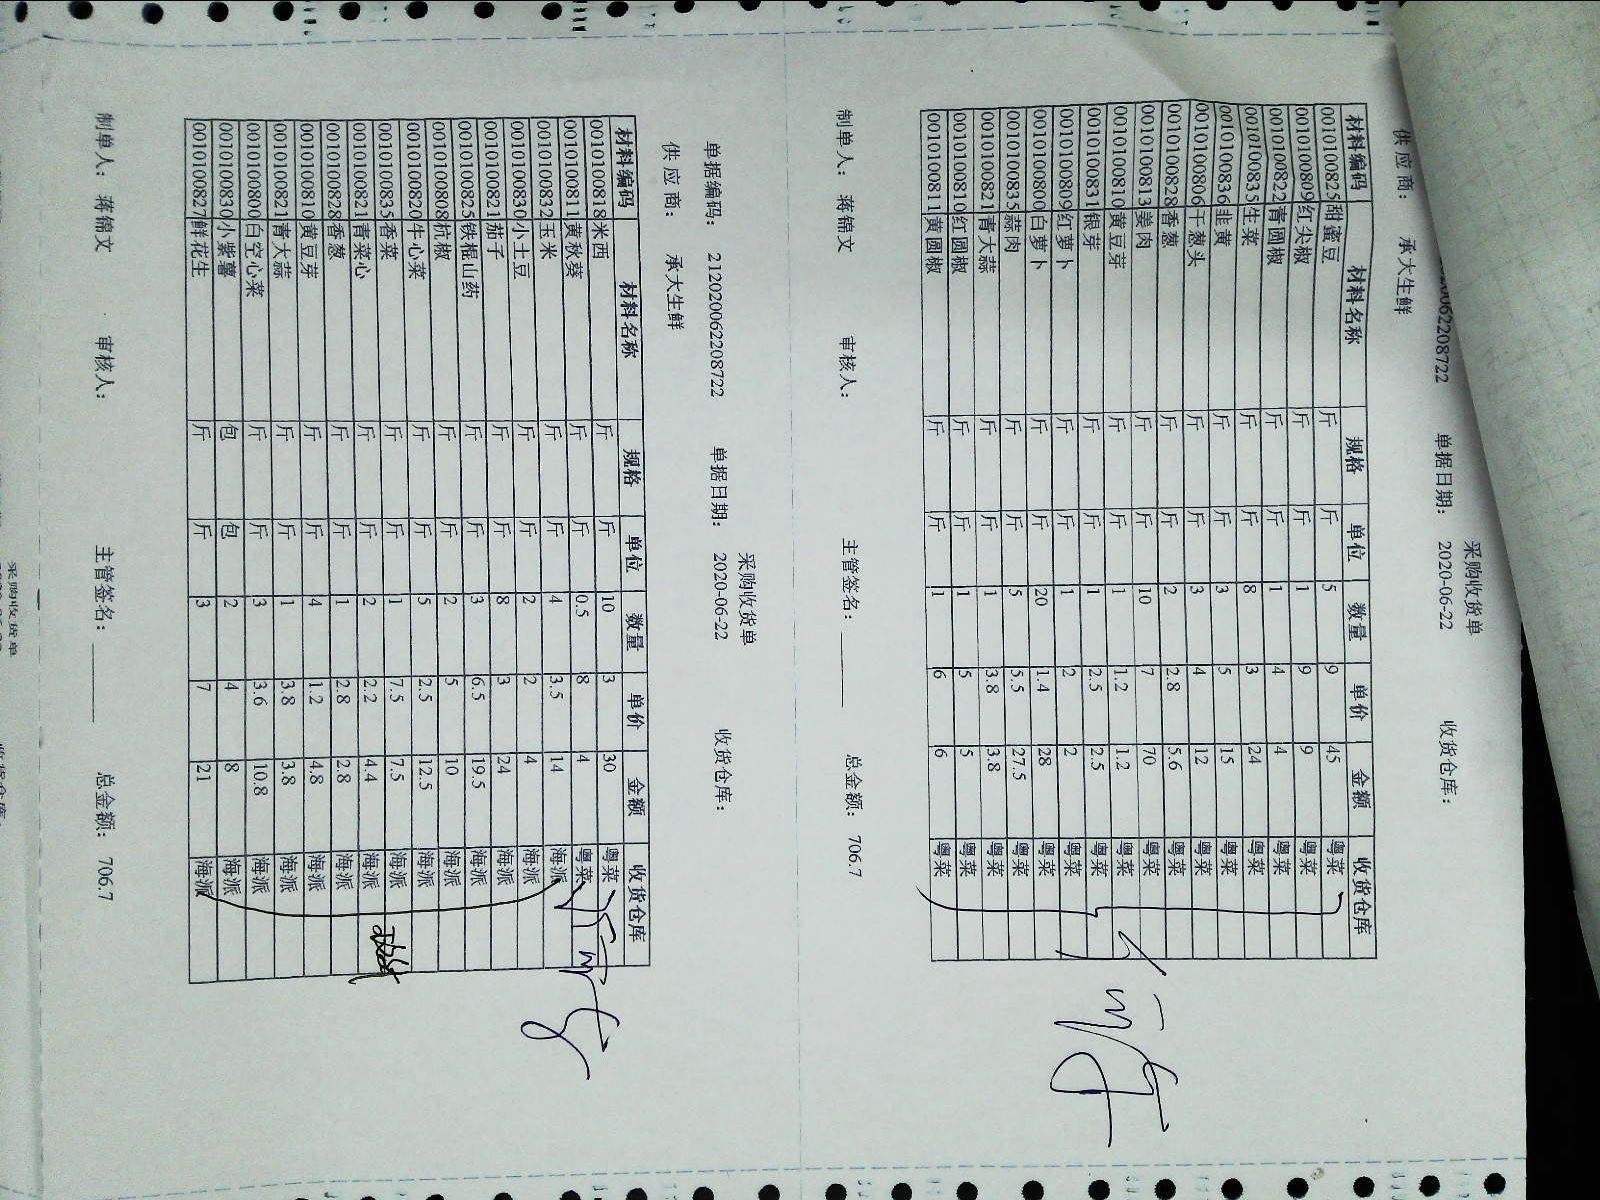 采购收货单
20062208722 单据日期: 2020-06-22 收货仓库:
供应商: 承大生鲜
材料编码 材料名称 规格 单位 数量 单价 金额 收货仓库
0010100825 甜蜜豆 斤 斤 5 9 45 粤菜
0010100809 红尖椒 斤 斤 1 9 9 粤菜
0010100822 青圆椒 斤 斤 1 4 4 粤菜
0010100835 生菜 斤 斤 8 3 24 粤菜
0010100836 韭黄 斤 斤 3 5 15 粤菜
0010100806 干葱头 斤 斤 3 4 12 粤菜
0010100828 香葱 斤 斤 2 2.8 5.6 粤菜
0010100813 姜肉 斤 斤 10 7 70 粤菜
0010100810 黄豆芽 斤 斤 1 1.2 1.2 粤菜
0010100831 银芽 斤 斤 1 2.5 2.5 粤菜
0010100809 红萝卜 斤 斤 1 2 2 粤菜
0010100800 白萝卜 斤 斤 20 1.4 28 粤菜
0010100835 蒜肉 斤 斤 5 5.5 27.5 粤菜
0010100821 青大蒜 斤 斤 1 3.8 3.8 粤菜
0010100810 红圆椒 斤 斤 1 5 5 粤菜
0010100811 黄圆椒 斤 斤 1 6 6 粤菜
制单人: 蒋锦文 审核人: 主管签名: 总金额: 706.7
采购收货单
单据编码: 212020062208722 单据日期: 2020-06-22 收货仓库:
供应商: 承大生鲜
材料编码 材料名称 规格 单位 数量 单价 金额 收货仓库
0010100818 米西 斤 斤 10 3 30 粤菜
0010100811 黄秋葵 斤 斤 0.5 8 4 粤菜
0010100832 玉米 斤 斤 4 3.5 14 海派
0010100830 小土豆 斤 斤 2 2 4 海派
0010100821 茄子 斤 斤 8 3 24 海派
0010100825 铁棍山药 斤 斤 3 6.5 19.5 海派
0010100808 杭椒 斤 斤 2 5 10 海派
0010100820 牛心菜 斤 斤 5 2.5 12.5 海派
0010100835 香菜 斤 斤 1 7.5 7.5 海派
0010100821 青菜心 斤 斤 2 2.2 4.4 海派
0010100828 香葱 斤 斤 1 2.8 2.8 海派
0010100810 黄豆芽 斤 斤 4 1.2 4.8 海派
0010100821 青大蒜 斤 斤 1 3.8 3.8 海派
0010100800 白空心菜 斤 斤 3 3.6 10.8 海派
0010100830 小紫薯 包 包 2 4 8 海派
0010100827 鲜花生 斤 斤 3 7 21 海派
制单人: 蒋锦文 审核人: 主管签名: 总金额: 706.7
采购收货单